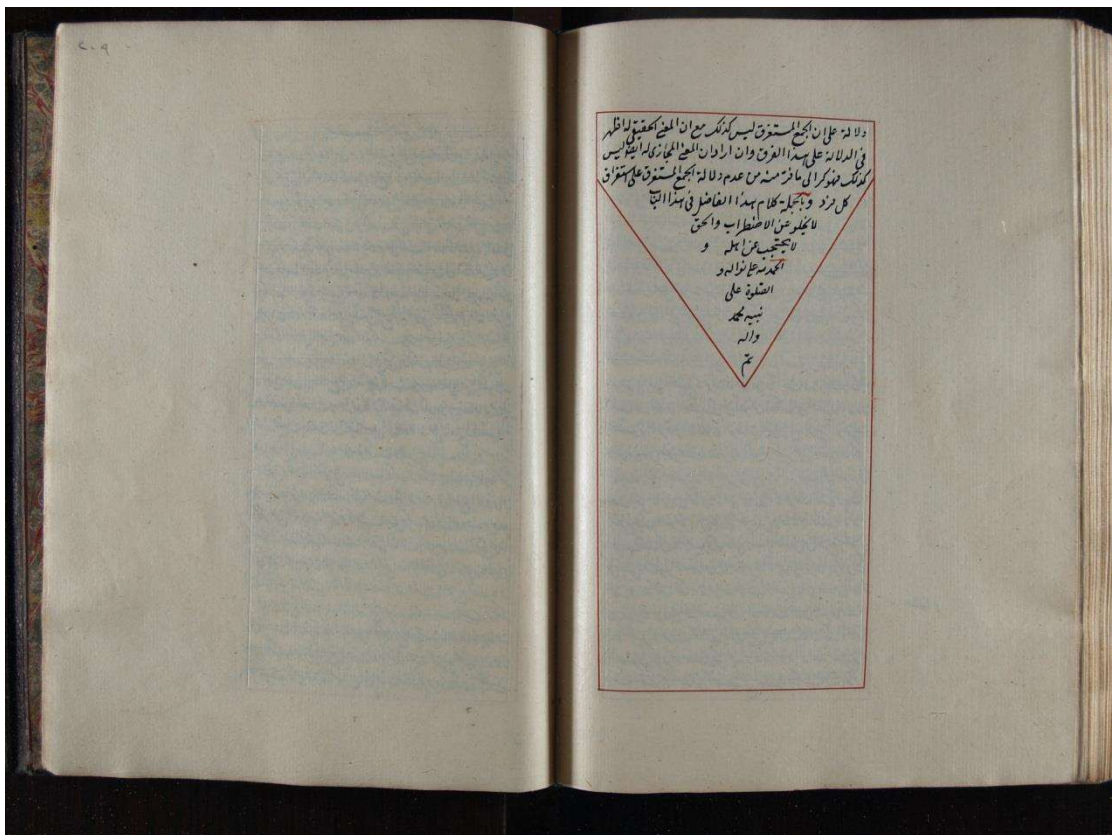 دلالة على ان الجمع المستغرق ليس كذلك مع ان المعنى الحقيقي له اظهر
فى الدلالة على هذا الفرق وان اراد ان المعنى المجازى له ايضا ليس
كذلك فهو كرا الى ما فر منه من عدم دلالة الجمع المستغرق على استغراق
كل فرد وبالجملة كلام هذا الفاضل فى هذا الباب
لا يخلو عن الاضطراب والحق
لا يحتجب عن اهله و
الحمد لله على نواله و
الصلوة على
نبيه محمد
واله
تم
٢٠٩